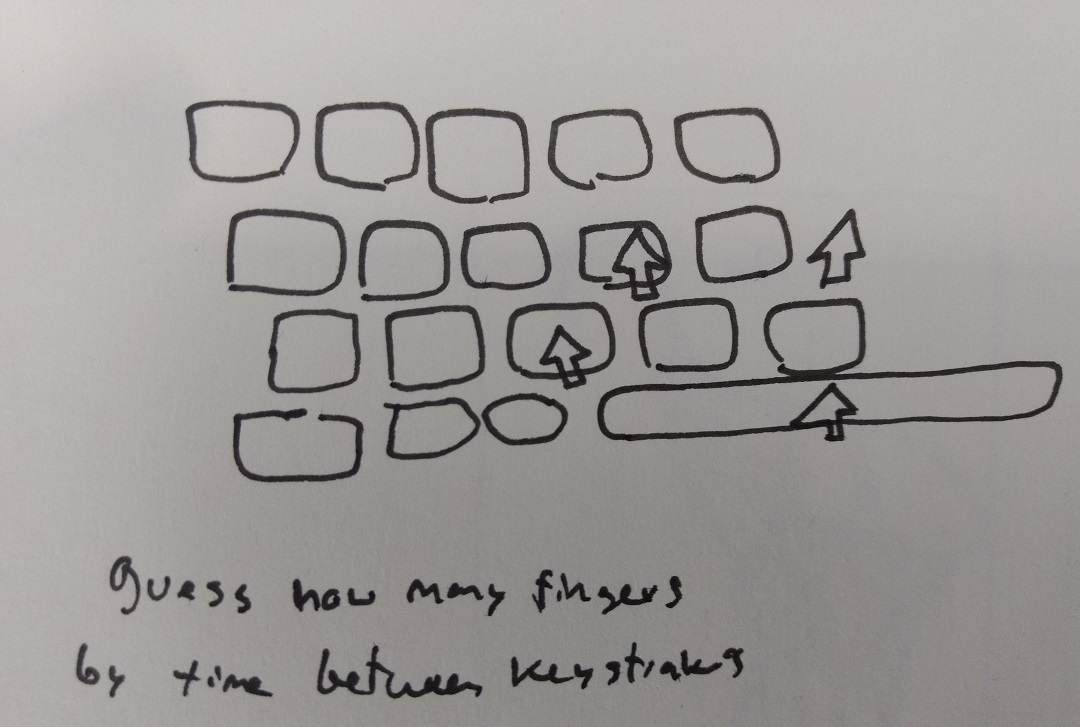 guess how many fingers
by time between keystrokes